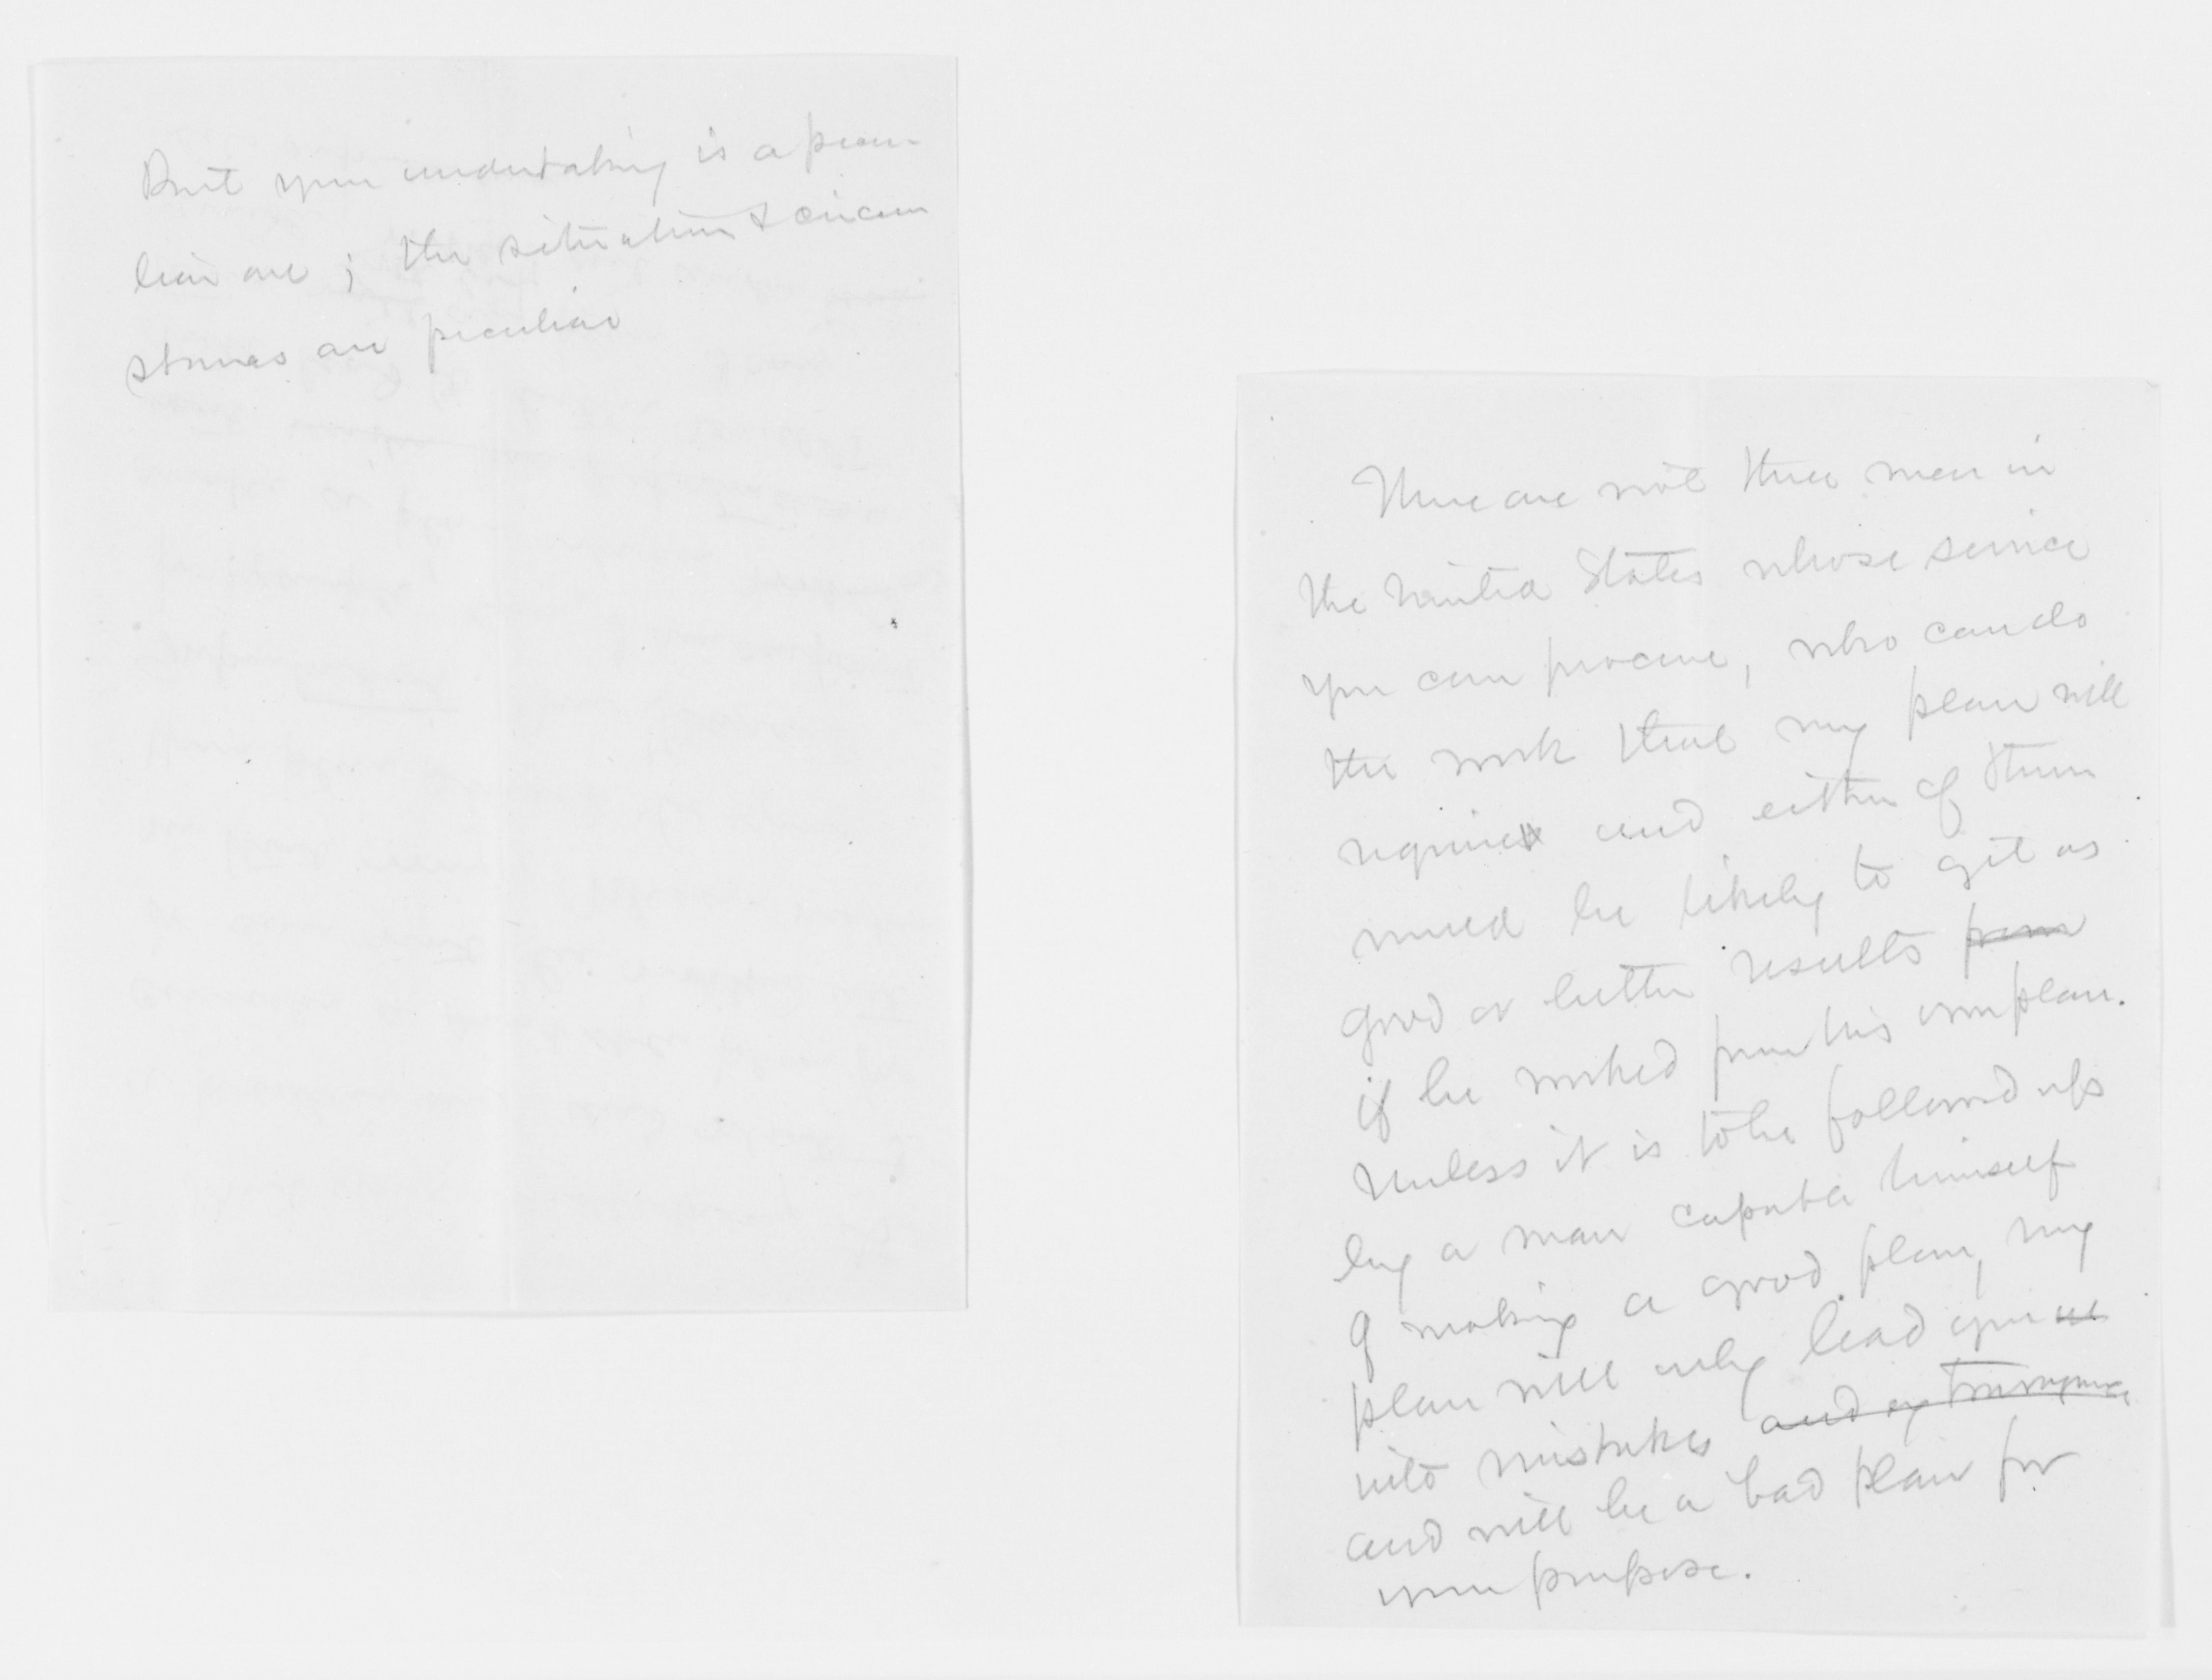 But your undertaking is a pecu-
liar one; the situation & circum
stances are peculiar
There are not three men in
the United States whose service
you can procure, who can do
the work that my plan will
require and either of them
would be likely to get as
good or better results from
if he worked from his own plan.
Unless it is to be followed up
by a man capable himself
of making a good plan, my
plan will only lead you
into mistakes and extravagance
and will be a bad plan for
your purpose.